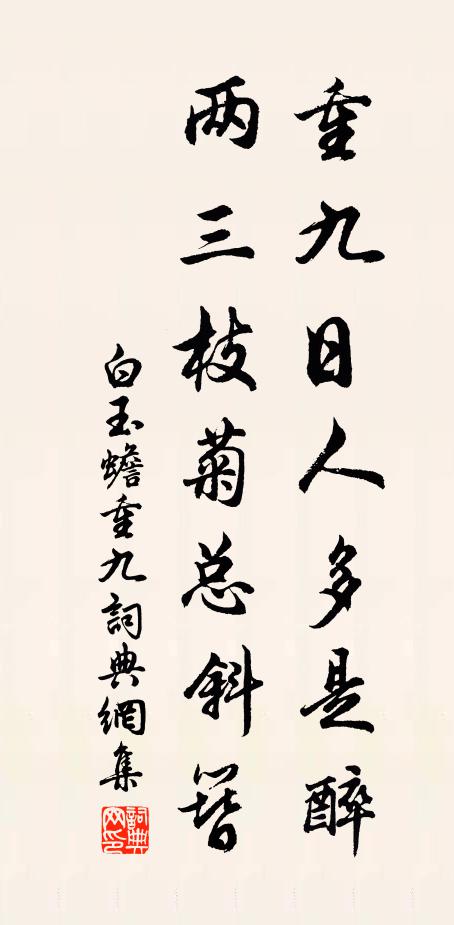 重九日人多是醉
两三枝菊总斜簪
白玉蟾重九詞典網集
詞典
网印